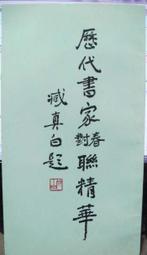 歷代書家春聯對精華
臧真白題